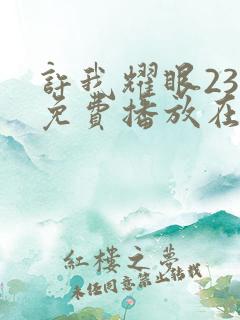 許我耀眼23
免費播放在
紅樓之夢
未經同意禁止轉載